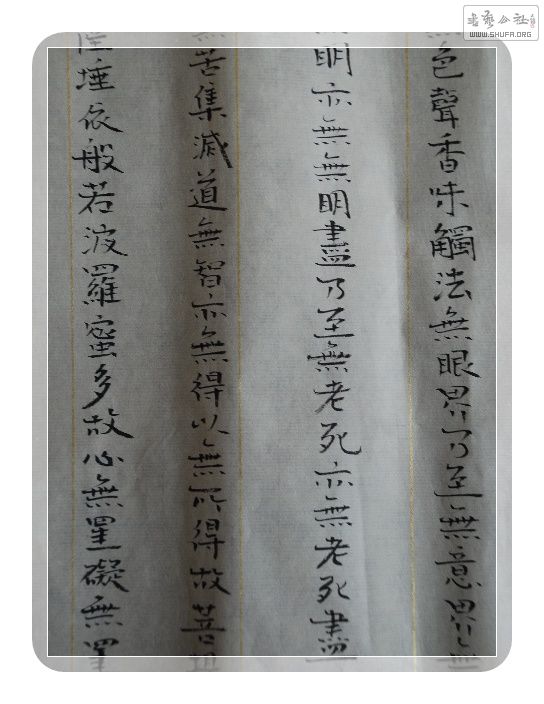 書藝公社
WWW.SHUFA.ORG
色聲香味觸法無眼界乃至無意界無
明亦無無明盡乃至無老死亦無老死盡
無苦集滅道無智亦無得以無所得故菩
埵依般若波羅蜜多故心無罣礙無罣